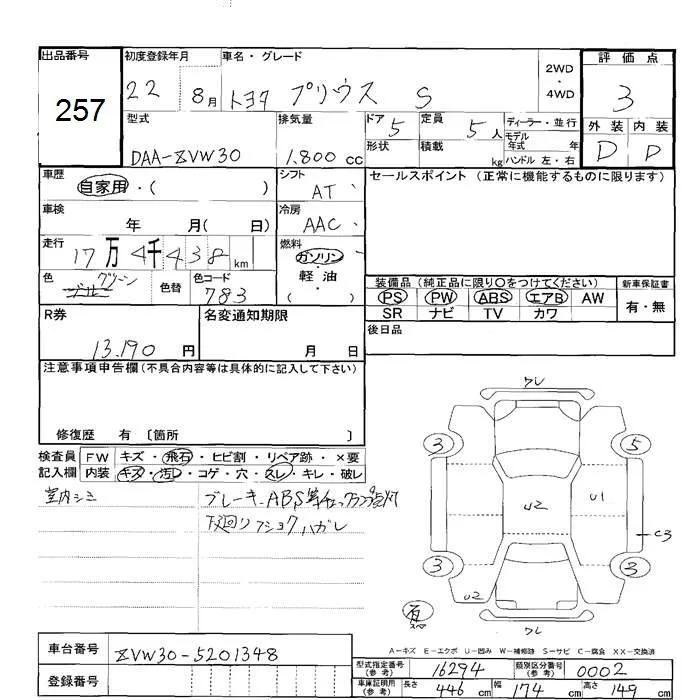 出品番号
257
初度登録年月
22 8月
車名・グレード
トヨタ プリウス S
2WD
・
4WD
評価点
3
外装 内装
D D
型式
DAA-ZVW30
排気量
1,800 cc
ドア 5
形状
定員 5人
積載 kg
ディーラー・並行
モデル
年式 年
ハンドル 左・右
車歴
自家用・( )
シフト
AT
セールスポイント (正常に機能するものに限ります)
車検
年 月( 日)
冷房
AAC
走行
17万4千438 km
燃料
ガソリン
・
軽油
( )
色
グリーン
色替
色コード
783
装備品 (純正品に限り○をつけてください)
PS PW ABS エアB AW
SR ナビ TV カワ
新車保証書
有・無
R券
13,190 円
名変通知期限
月 日
後日品
注意事項申告欄 (不具合内容等は具体的に記入して下さい)
修復歴 有 〔箇所 〕
検査員
記入欄
FW キズ・飛石・ヒビ割・リペア跡・×要
内装 キズ・汚レ・コゲ・穴・スレ・キレ・破レ
室内シミ
ブレーキ、ABS等チェックランプ点灯
下廻りフショクハガレ
ワレ
3
5
U2
U1
C3
3
3
U2
有
スペア
ワレ
A－キズ E－エクボ U－凹み W－補修跡 S－サビ C－腐食 XX－交換済
車台番号
ZVW30-5201348
登録番号
型式指定番号
(参考)
16294
類別区分番号
(参考)
0002
車庫証明用
(参考)
長さ 446 cm
幅 174 cm
高さ 149 cm